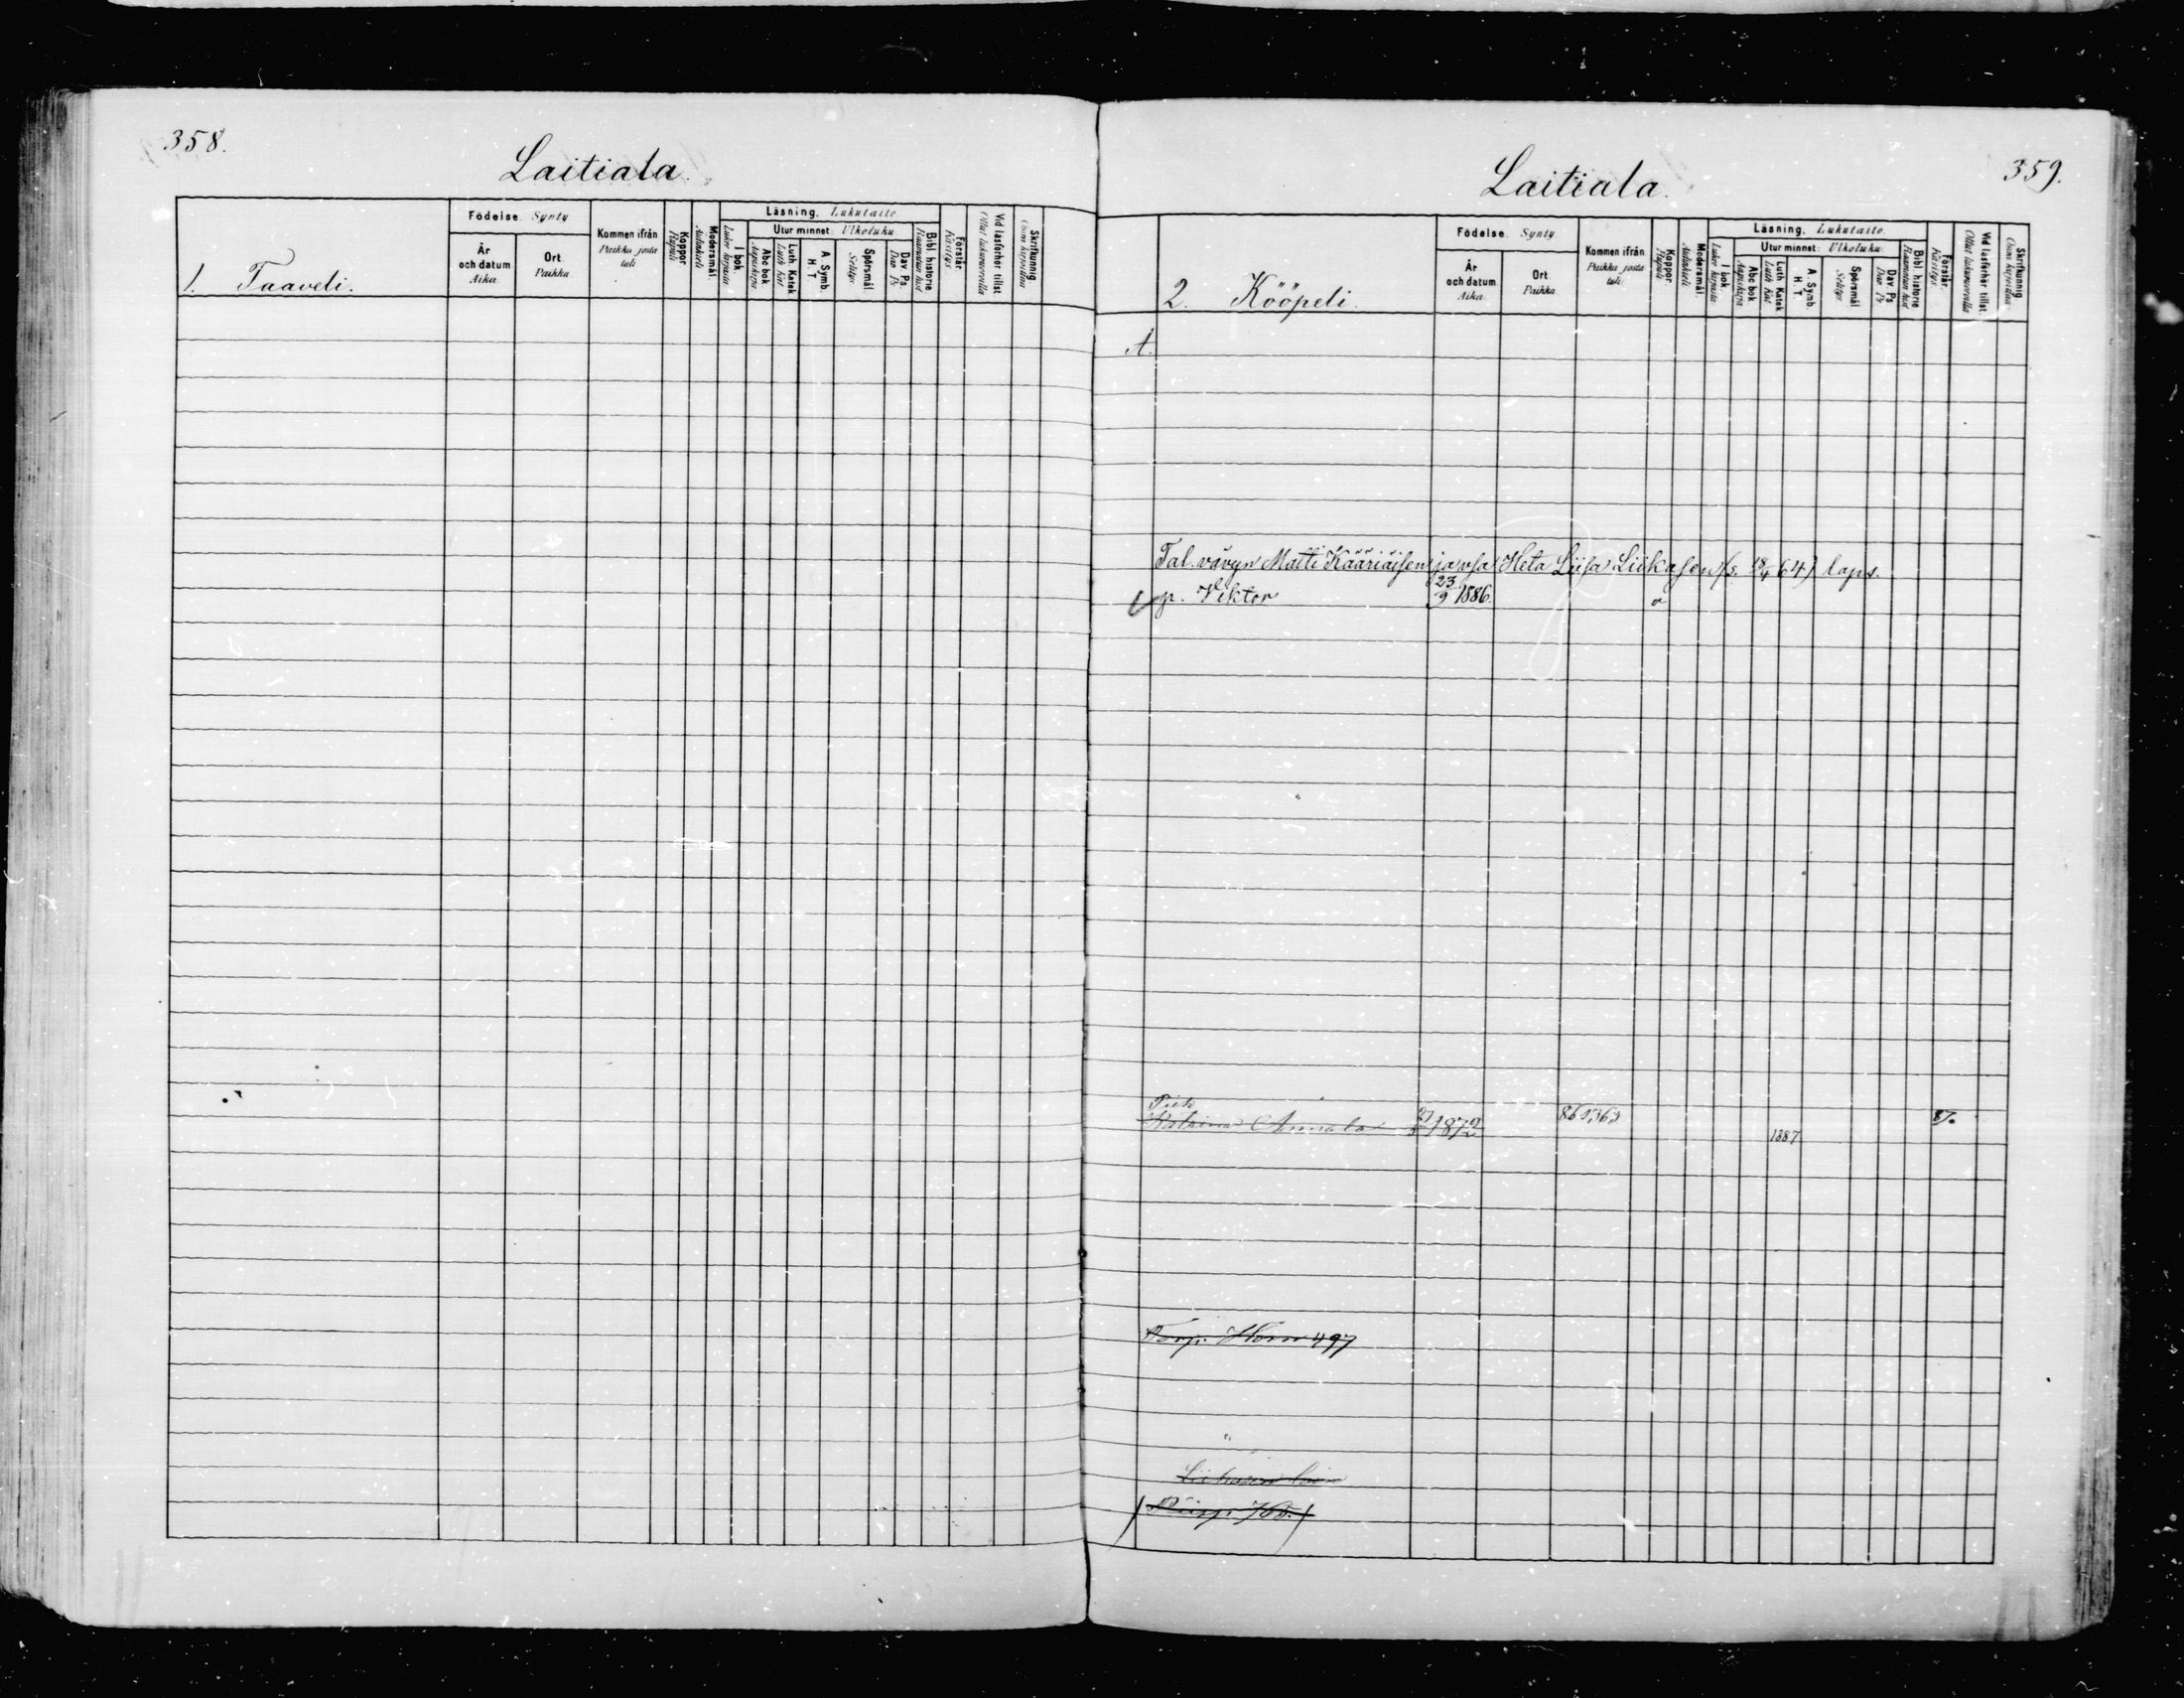 358.
Laitiala.
1. Taaveli.
Födelse. Synty
År och datum Aika
Ort. Paikka
Kommen ifrån Paikka josta tuli
Koppor Rupuli
Modersmål. Äidinkieli
Läsning. Lukutaito.
I bok. Lukee kirjasta
Utur minnet: Ulkoluku.
Abc bok Aapiskirja
Luth. Katek. Luth Kat
A. Symb. H. T.
Spörsmål. Selitys
Dav. Ps Dav Ps
Bibl. historie.
Förstår Käsitys
Vid läsförhör tillst. Ollut lukuvuorolla
Skrifkunnig. Osaa kirjoittaa
Laitiala.
359.
2. Kööpeli.
Födelse. Synty
År och datum Aika
Ort. Paikka
Kommen ifrån Paikka josta tuli
Koppor Rupuli
Modersmål. Äidinkieli
Läsning. Lukutaito.
I bok. Lukee kirjasta
Utur minnet: Ulkoluku.
Abc bok Aapiskirja
Luth. Katek Luth Kat
A. Symb. H. T.
Spörsmål Selitys
Dav. Ps Dav Ps
Bibl. historie
Förstår Käsitys
Vid läsförhör tillst. Ollut lukuvuorolla
Skrifkunnig. Osaa kirjoittaa
A.
Tal. vävyn Matti Kääriäisen ja vsa Heta Liisa Liikasen (s. 18/4 64) laps.
p. Viktor 23/9 1886.
Piik
Katriina Annala 1872 1887